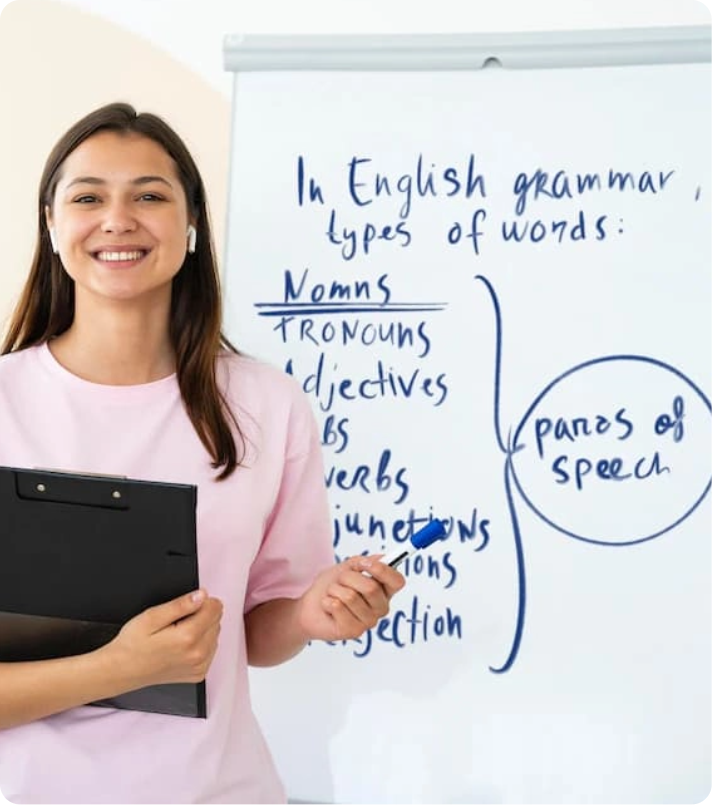 In English grammar,
types of words:
Nouns
PRONOUNS
Adjectives
bs
verbs
junctions
ions
jection
parts of
speech